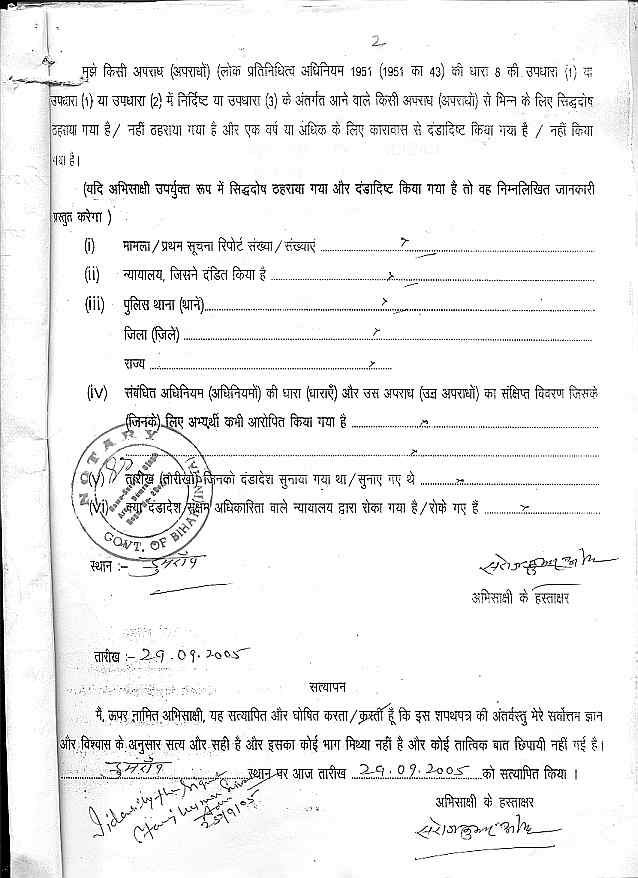 2
मुझे किसी अपराध (अपराधों) (लोक प्रतिनिधित्व अधिनियम 1951 (1951 का 43) की धारा 8 की उपधारा (1) या
उपधारा (1) या उपधारा (2) में निर्दिष्ट या उपधारा (3) के अंतर्गत आने वाले किसी अपराध (अपराधों) से भिन्न के लिए सिद्धदोष
ठहराया गया है / नहीं ठहराया गया है और एक वर्ष या अधिक के लिए कारावास से दंडादिष्ट किया गया है / नहीं किया
गया है।
(यदि अभिसाक्षी उपर्युक्त रूप में सिद्धदोष ठहराया गया और दंडादिष्ट किया गया है तो वह निम्नलिखित जानकारी
प्रस्तुत करेगा )
(i) मामला / प्रथम सूचना रिपोर्ट संख्या / संख्याएं
(ii) न्यायालय, जिसने दंडित किया है
(iii) पुलिस थाना (थानें)
जिला (जिले)
राज्य
(iv) संबंधित अधिनियम (अधिनियमों) की धारा (धाराएँ) और उस अपराध (उन अपराधों) का संक्षिप्त विवरण जिसके
(जिनके) लिए अभ्यर्थी कभी आरोपित किया गया है
(v) तारीख (तारीखों) जिनको दंडादेश सुनाया गया था / सुनाए गए थे
(vi) क्या दंडादेश सक्षम अधिकारिता वाले न्यायालय द्वारा रोका गया है / रोके गए हैं
NOTARY
GOVT. OF BIHAR
स्थान :- डुमराँव
अभिसाक्षी के हस्ताक्षर
तारीख :- 29.09.2005
सत्यापन
मैं, ऊपर नामित अभिसाक्षी, यह सत्यापित और घोषित करता / करती हूँ कि इस शपथपत्र की अंतर्वस्तु मेरे सर्वोत्तम ज्ञान
और विश्वास के अनुसार सत्य और सही है और इसका कोई भाग मिथ्या नहीं है और कोई तात्विक बात छिपायी नहीं गई है।
डुमराँव स्थान पर आज तारीख 29.09.2005 को सत्यापित किया ।
अभिसाक्षी के हस्ताक्षर